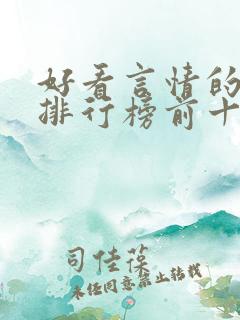 好看言情的
排行榜前十
司佳葆
未经同意禁止转载